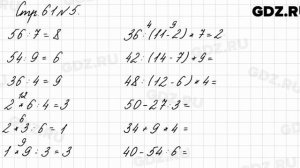 Стр. 61 № 5.
GDZ.RU
56:7=8
54:9=6
36:4=9
12
2*6:4=3
6
2*3:6=1
9
1*9:3=3
4 9
36:(11-2)*7=2
42:(14-7)*9=
48:(12-6)*4=
50-27:3=
34+9*4=
40-54:6=